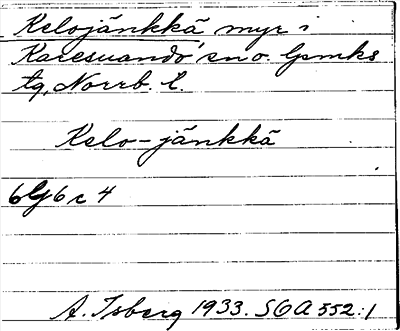 Kelojänkkä myr i
Karesuando sn o. lpmks
tg, Norrb. l.
Kelo-jänkkä
6 g 6 c 4
A. Isberg 1933. SOA 552:1